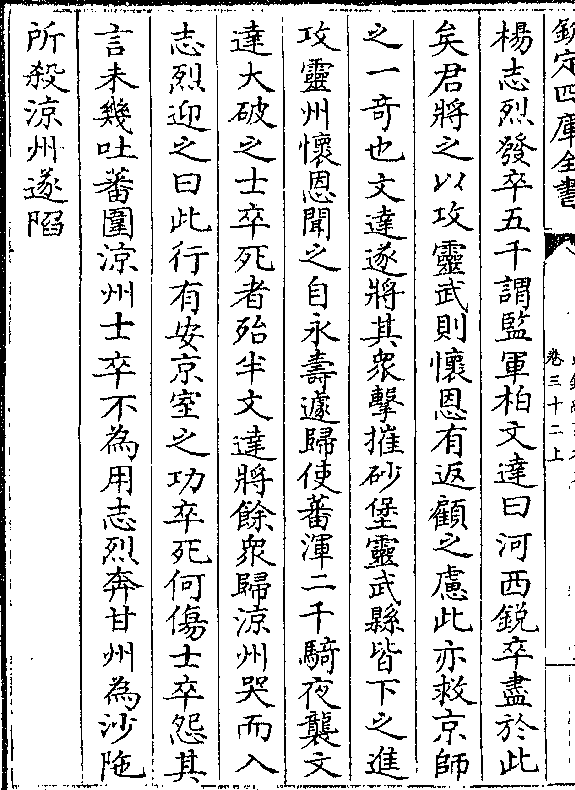 欽定四庫全書
卷三十二上
楊志烈發卒五千謂監軍柏文達曰河西鋭卒盡於此
矣君將之以攻靈武則懷恩有返顧之慮此亦救京師
之一奇也文達遂將其衆擊摧砂堡靈武縣皆下之進
攻靈州懷恩聞之自永壽遽歸使蕃渾二千騎夜襲文
達大破之士卒死者殆半文達將餘衆歸涼州哭而入
志烈迎之曰此行有安京室之功卒死何傷士卒怨其
言未幾吐蕃圍涼州士卒不為用志烈奔甘州為沙陁
所殺涼州遂陷